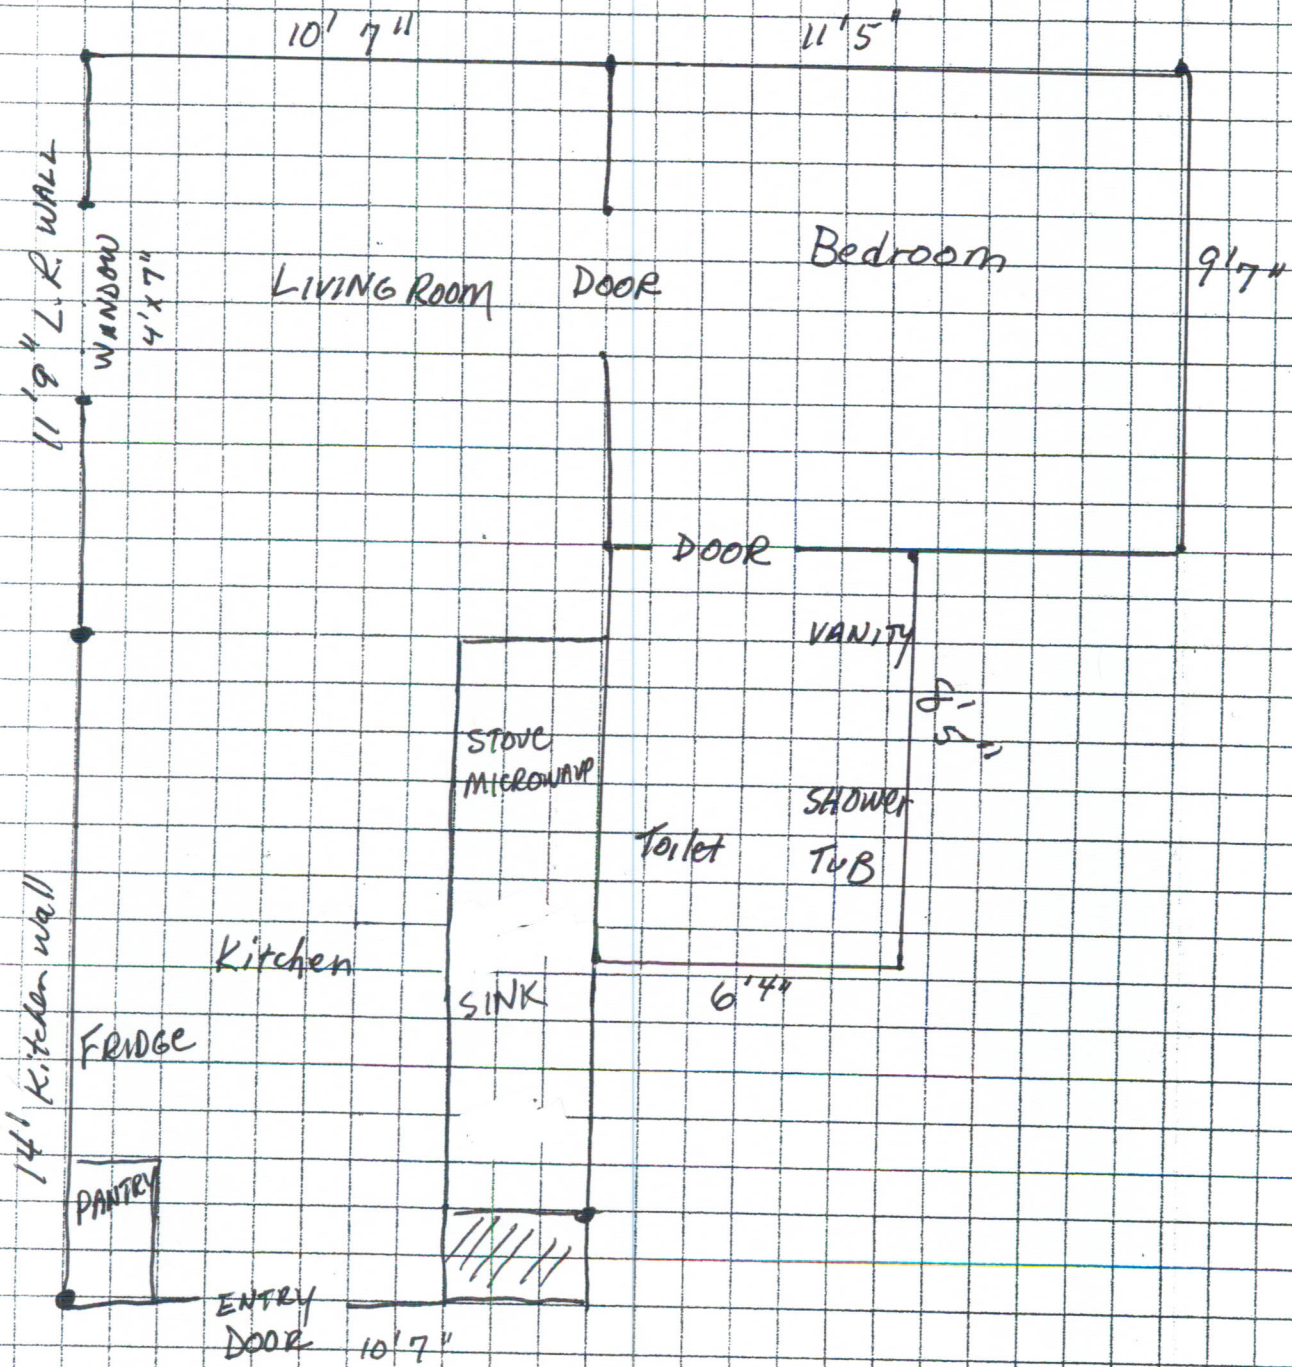 10' 7"
11'5"
11'9" L.R. WALL
WINDOW
4'X7"
LIVING ROOM
DOOR
Bedroom
9'7"
DOOR
VANITY
8'5"
STOVE
MICROWAVE
SHOWER
TUB
Toilet
Kitchen
SINK
6'4"
FRIDGE
14' Kitchen Wall
PANTRY
ENTRY
DOOR
10'7"